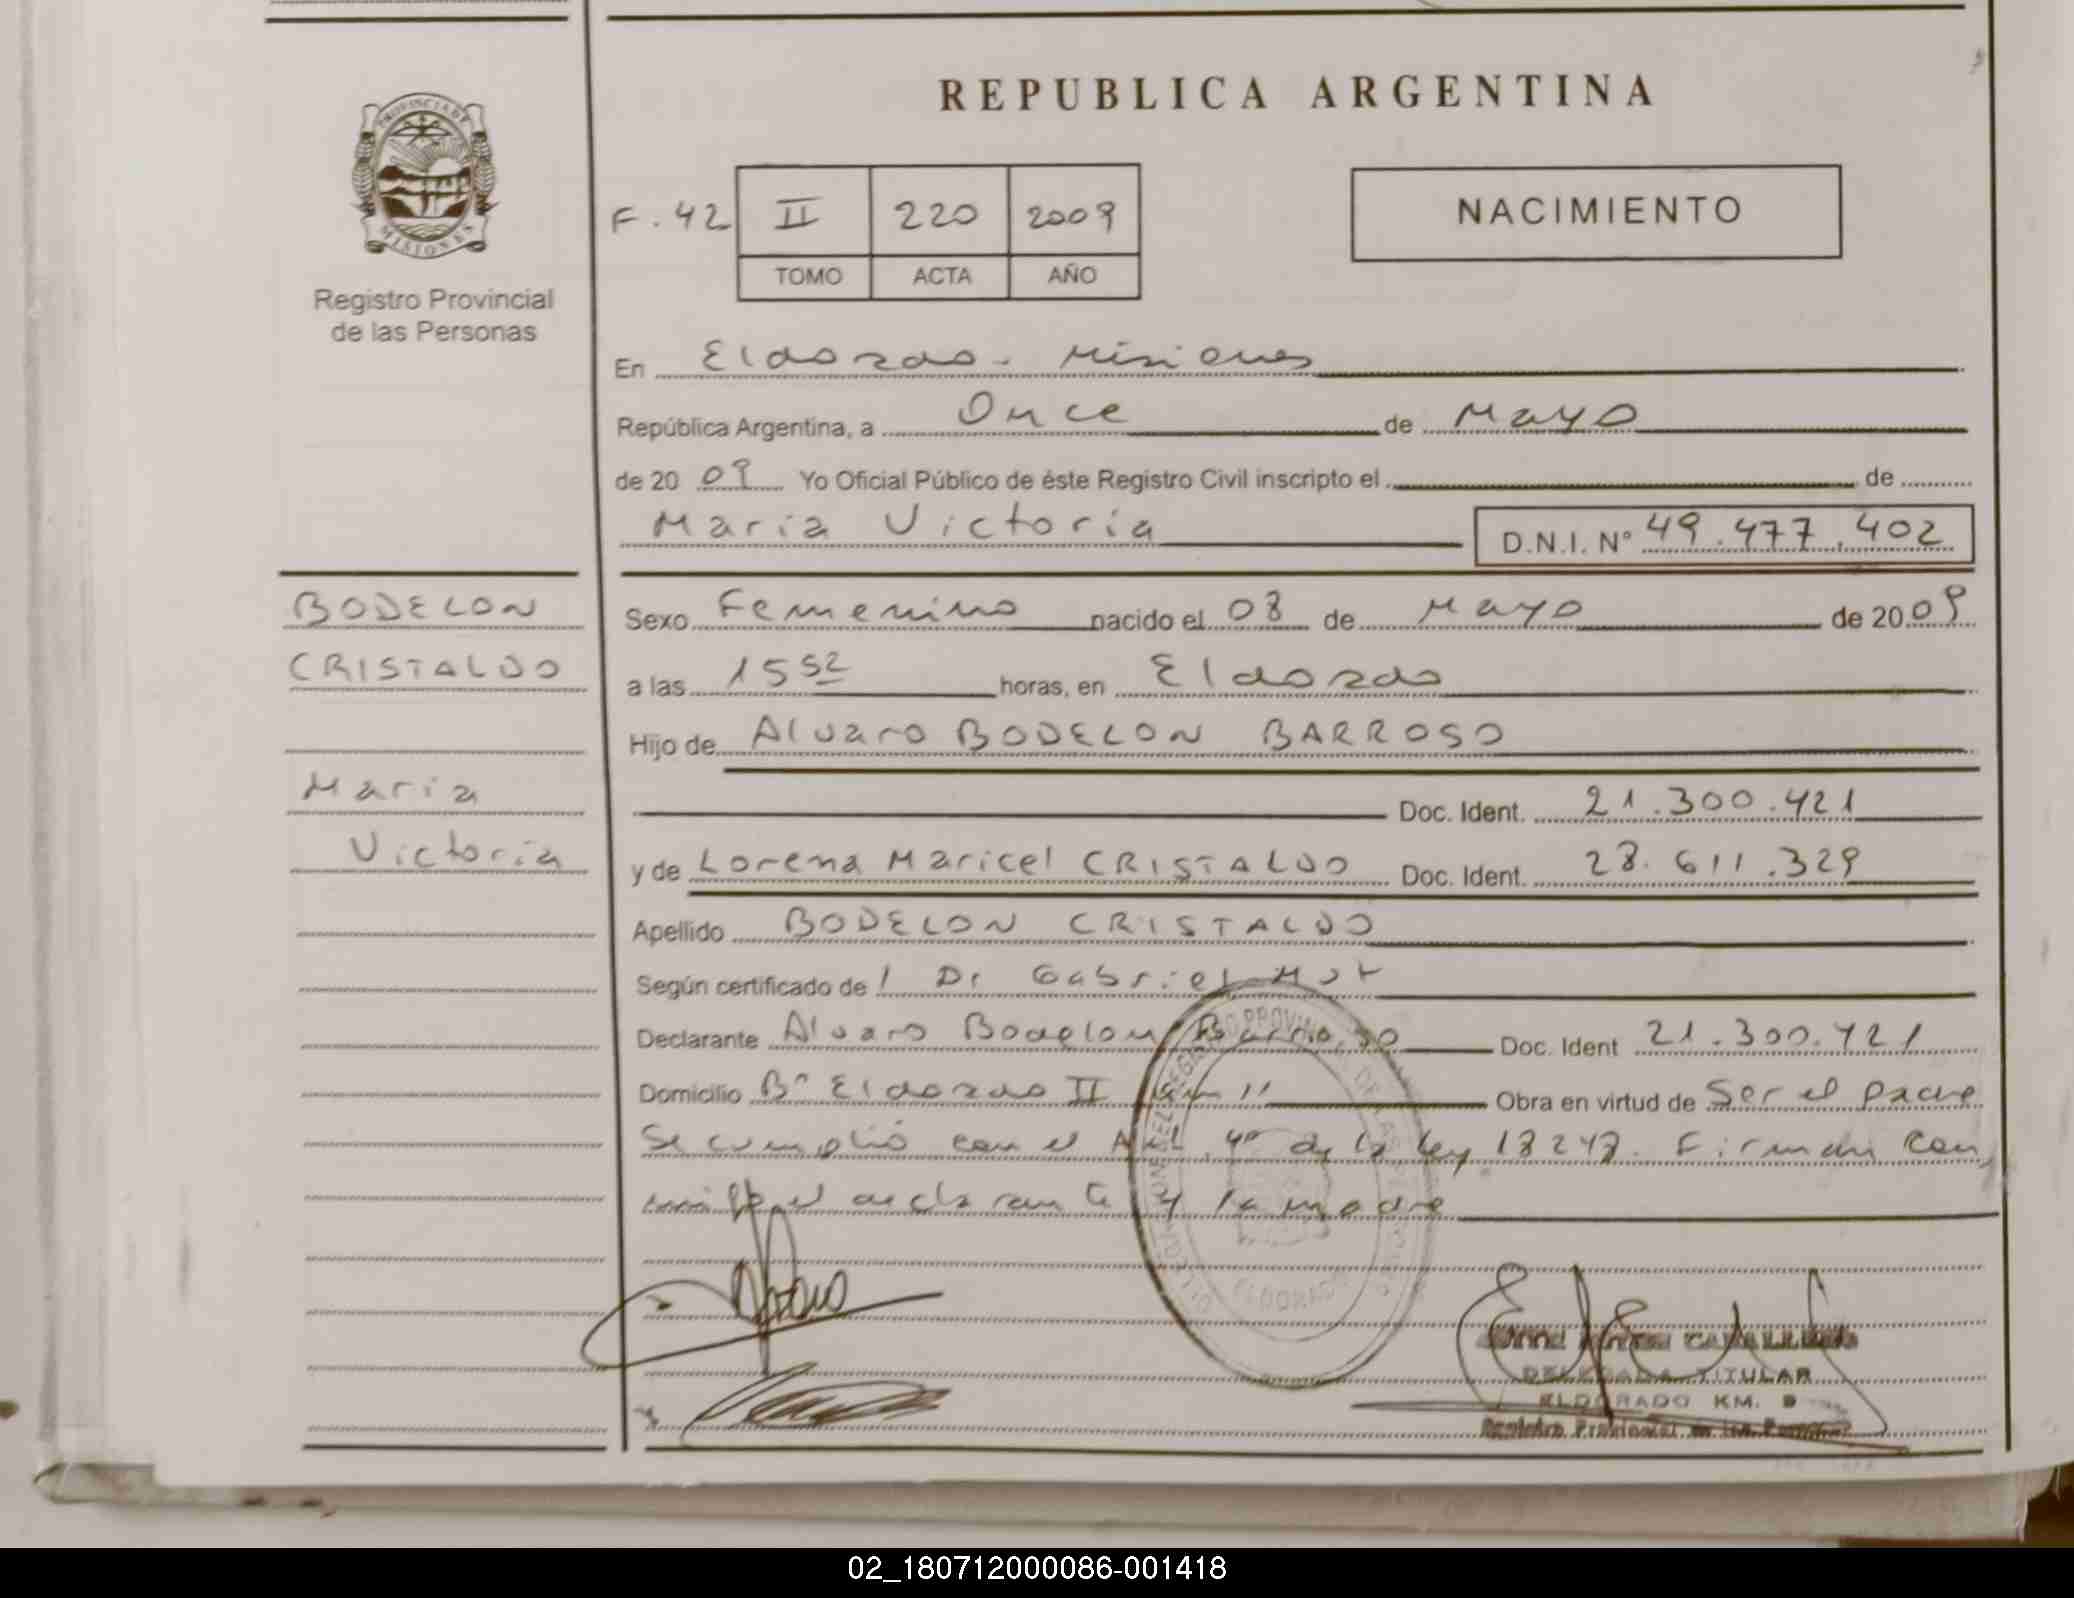 REPUBLICA ARGENTINA
PROVINCIA DE
MISIONES
Registro Provincial
de las Personas
F. 42 II 220 2009
TOMO ACTA AÑO
NACIMIENTO
En Eldorado - Misiones
República Argentina, a Once de Mayo
de 20 09 Yo Oficial Público de éste Registro Civil inscripto el de
Maria Victoria D.N.I. N° 49.477.402
BODELON
CRISTALDO
Maria
Victoria
Sexo Femenino nacido el 08 de Mayo de 2009
a las 15 52 horas, en Eldorado
Hijo de Alvaro BODELON BARROSO
Doc. Ident. 21.300.421
y de Lorena Maricel CRISTALDO Doc. Ident. 28.611.329
Apellido BODELON CRISTALDO
Según certificado de l Dr Gabriel
Declarante Alvaro Bodelon Barroso Doc. Ident 21.300.421
Domicilio B° Eldorado II km 11 Obra en virtud de Ser el padre
Se cumplió con el Art. 4° de la ley 18248. Firman con,
migo el declarante y la madre
ELDORADO
DELEGADA TITULAR
ELDORADO KM. 9
Registro Provincial de las Personas
02_180712000086-001418